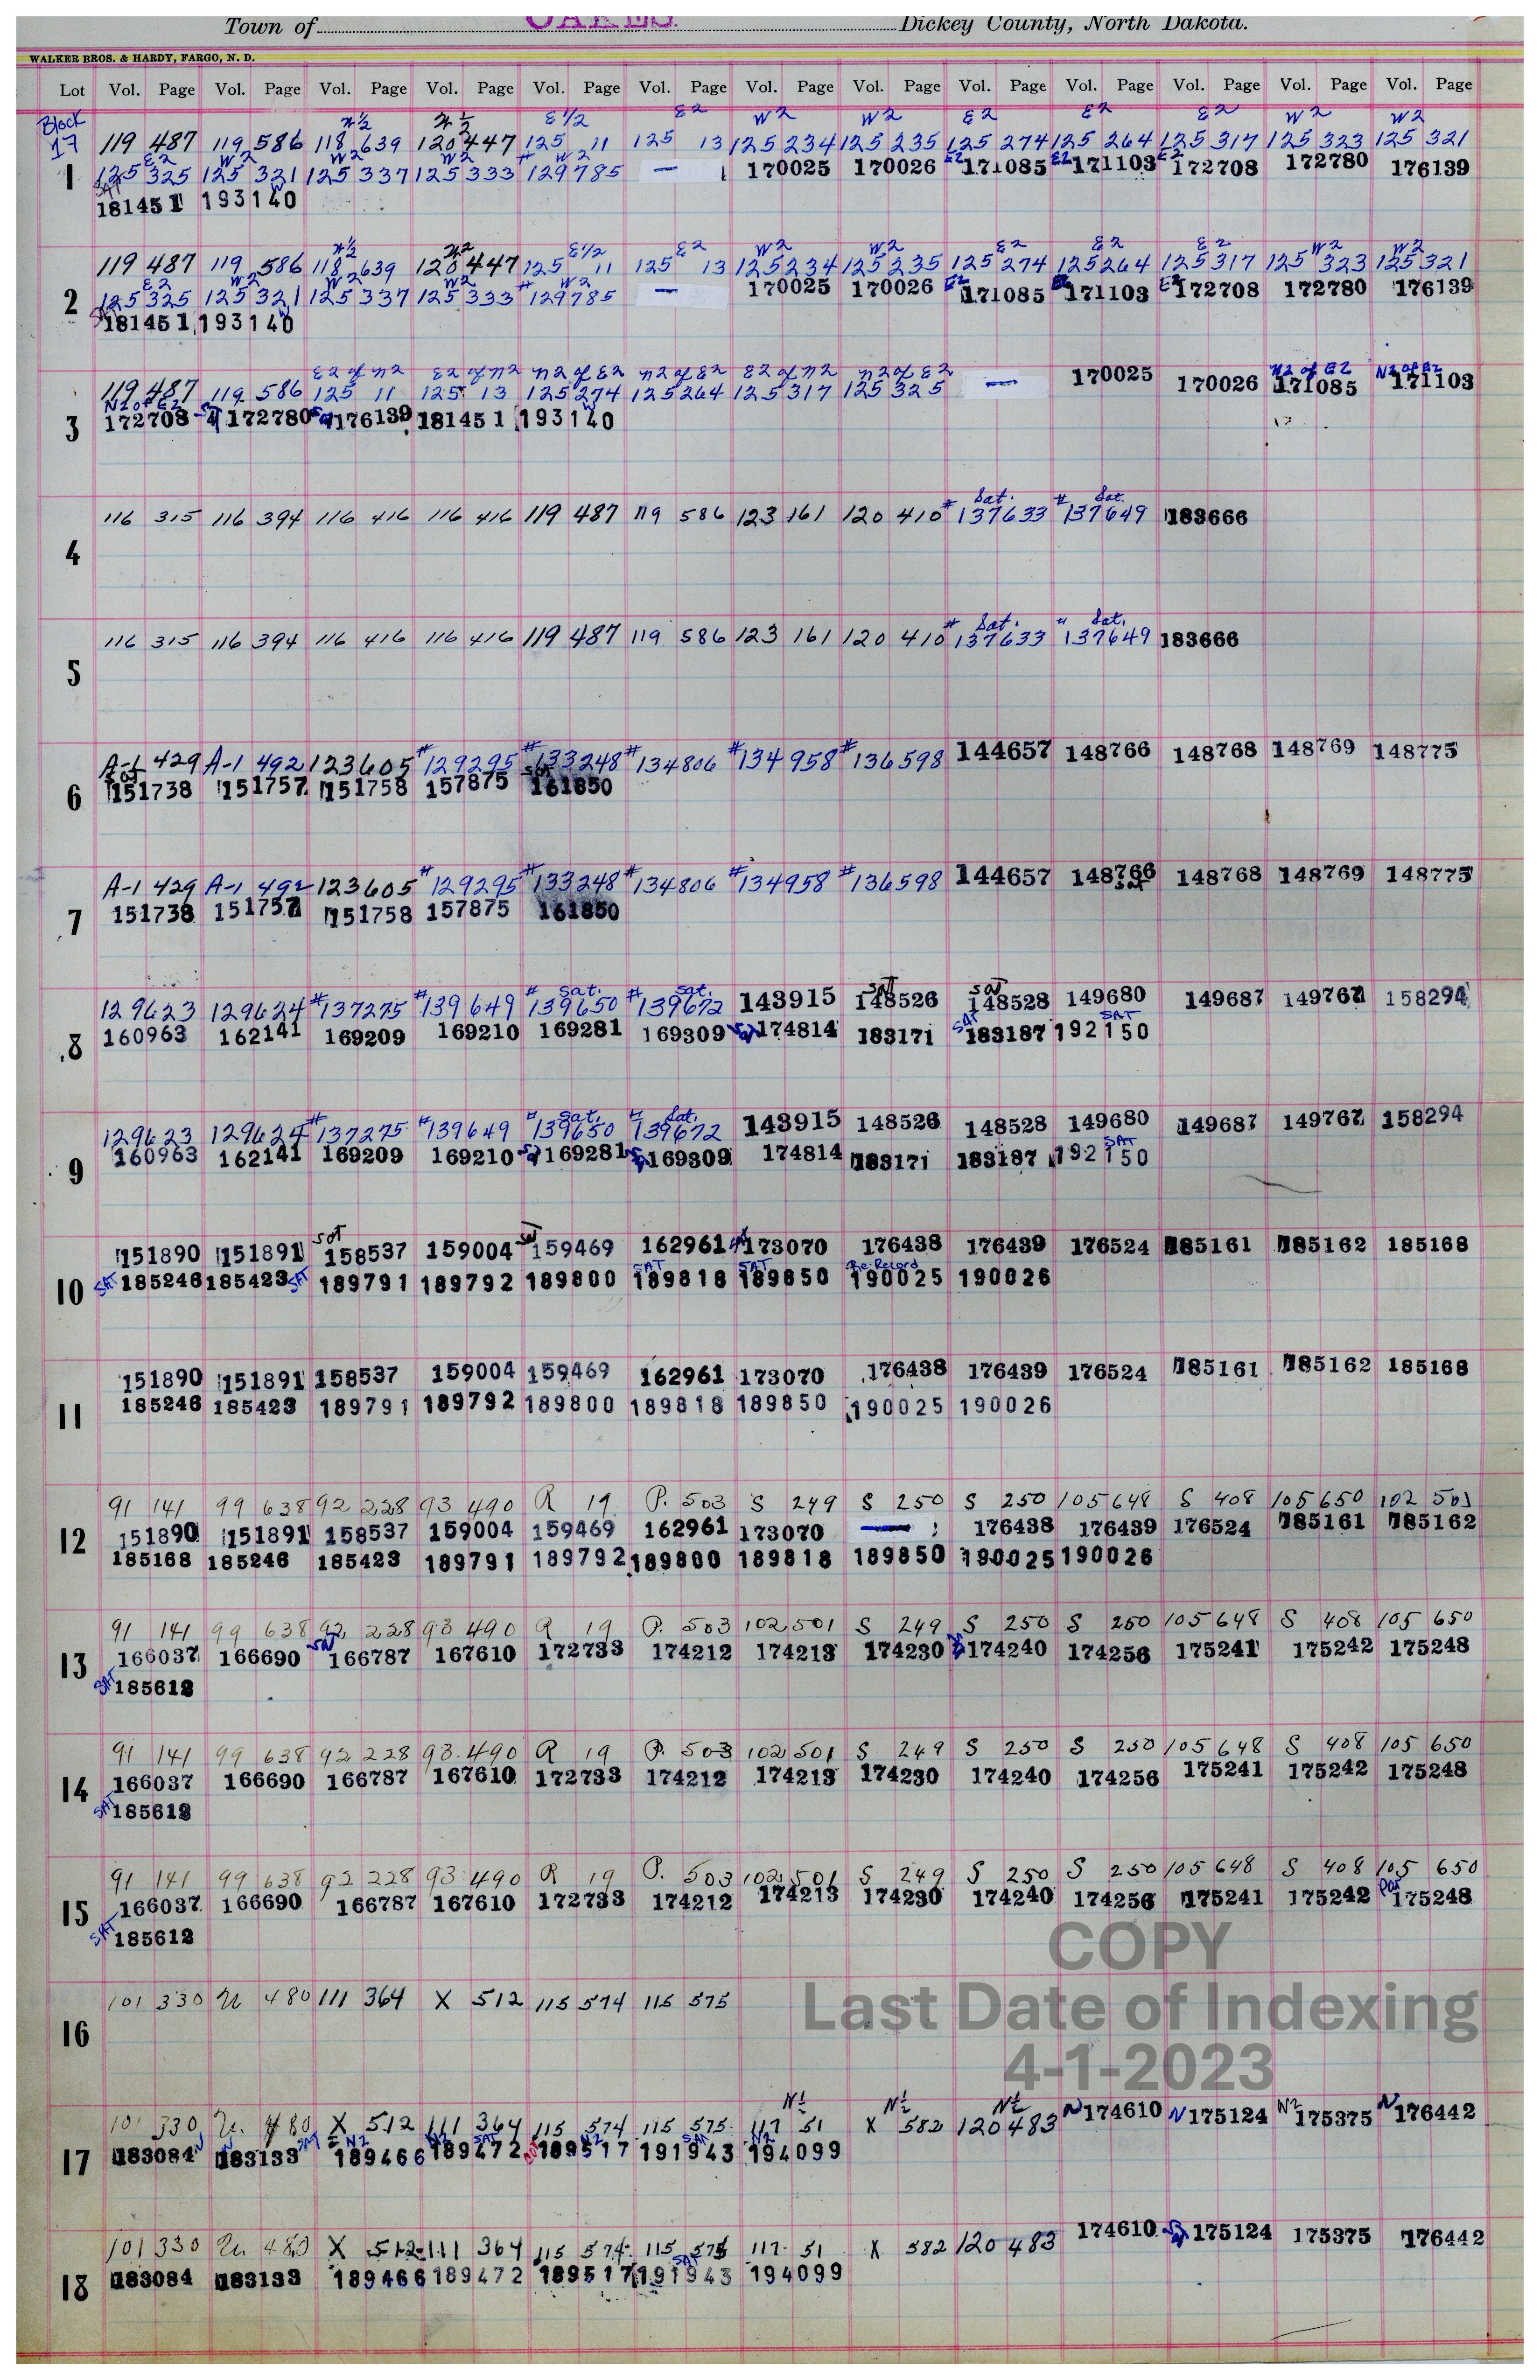 Town of OAKES Dickey County, North Dakota.
WALKER BROS. & HARDY, FARGO, N. D.
Lot Vol. Page Vol. Page Vol. Page Vol. Page Vol. Page Vol. Page Vol. Page Vol. Page Vol. Page Vol. Page Vol. Page Vol. Page Vol. Page
Block 17
E 1/2 E2 W2 W2 E2 E2 E2 W2 W2
119 487 119 586 118 639 120 447 125 11 125 13 125 234 125 235 125 274 125 264 125 317 125 323 125 321
E2 W2 W2 W2 # W2
1 125 325 125 321 125 337 125 333 129785 — 170025 170026 E2 171085 E2 171103 E2 172708 172780 176139
SAT W
181451 193140
E 1/2 E2 W2 W2 E2 E2 E2 W2 W2
119 487 119 586 118 639 120 447 125 11 125 13 125 234 125 235 125 274 125 264 125 317 125 323 125 321
E2 W2 W2 W2 # W2
2 125 325 125 321 125 337 125 333 129785 — 170025 170026 E2 171085 171103 E2 172708 172780 176139
SAT W
181451 193140
E2 of N2 E2 of N2 N2 of E2 N2 of E2 E2 of N2 N2 of E2 N2 of E2 N2 of E2
119 487 119 586 125 11 125 13 125 274 125 264 125 317 125 325 — 170025 170026 171085 171103
N2 of E2 W
3 172708 172780 176139 181451 193140
Sat. Sat.
4 116 315 116 394 116 416 116 416 119 487 119 586 123 161 120 410 #137633 #137649 183666
Sat. Sat.
5 116 315 116 394 116 416 116 416 119 487 119 586 123 161 120 410 #137633 "137649 183666
A-1 429 A-1 492 123605 #129295 #133248 #134806 #134958 #136598 144657 148766 148768 148769 148775
Sat Sat
6 151738 151757 151758 157875 161850
A-1 429 A-1 492 123605 #129295 #133248 #134806 #134958 #136598 144657 148766 148768 148769 148775
Sat
7 151738 151757 151758 157875 161850
Sat. Sat. Sat Sat
129623 129624 #137275 #139649 #139650 #139672 143915 148526 148528 149680 149687 149767 158294
SAT SAT
8 160963 162141 169209 169210 169281 169309 174814 183171 183187 192150
Sat. Sat.
129623 129624 #137275 #139649 "139650 "139672 143915 148526 148528 149680 149687 149767 158294
SAT
9 160963 162141 169209 169210 169281 169309 174814 183171 183187 192150
Sat Sat
151890 151891 158537 159004 159469 162961 173070 176438 176439 176524 185161 185162 185168
SAT SAT SAT SAT Re-Record
10 185246 185423 189791 189792 189800 189818 189850 190025 190026
151890 151891 158537 159004 159469 162961 173070 176438 176439 176524 185161 185162 185168
11 185246 185423 189791 189792 189800 189818 189850 190025 190026
91 141 99 638 92 228 93 490 R 19 P. 503 S 249 S 250 S 250 105 648 S 408 105 650 102 501
12 151890 151891 158537 159004 159469 162961 173070 — 176438 176439 176524 185161 185162
185168 185246 185423 189791 189792 189800 189818 189850 190025 190026
91 141 99 638 92 228 93 490 R 19 P. 503 102 501 S 249 S 250 S 250 105 648 S 408 105 650
Sat
13 166037 166690 166787 167610 172733 174212 174213 174230 174240 174256 175241 175242 175248
SAT 185612
91 141 99 638 92 228 93 490 R 19 P. 503 102 501 S 249 S 250 S 250 105 648 S 408 105 650
14 166037 166690 166787 167610 172733 174212 174213 174230 174240 174256 175241 175242 175248
SAT 185612
91 141 99 638 92 228 93 490 R 19 P. 503 102 501 S 249 S 250 S 250 105 648 S 408 105 650
15 166037 166690 166787 167610 172733 174212 174213 174230 174240 174256 175241 175242 175248
SAT 185612
COPY
16 101 330 480 111 364 X 512 115 574 115 575
Last Date of Indexing
4-1-2023
N½ N½ N½
101 330 480 X 512 111 364 115 574 115 575 117 51 X 582 120 483 N 174610 N 175124 N2 175375 N 176442
N N SAT N2 SAT N2 SAT N2
17 183084 183133 189466 189472 189517 191943 194099
101 330 480 X 512 111 364 115 574 115 575 117 51 X 582 120 483 174610 175124 175375 176442
SAT
18 183084 183133 189466 189472 189517 191943 194099